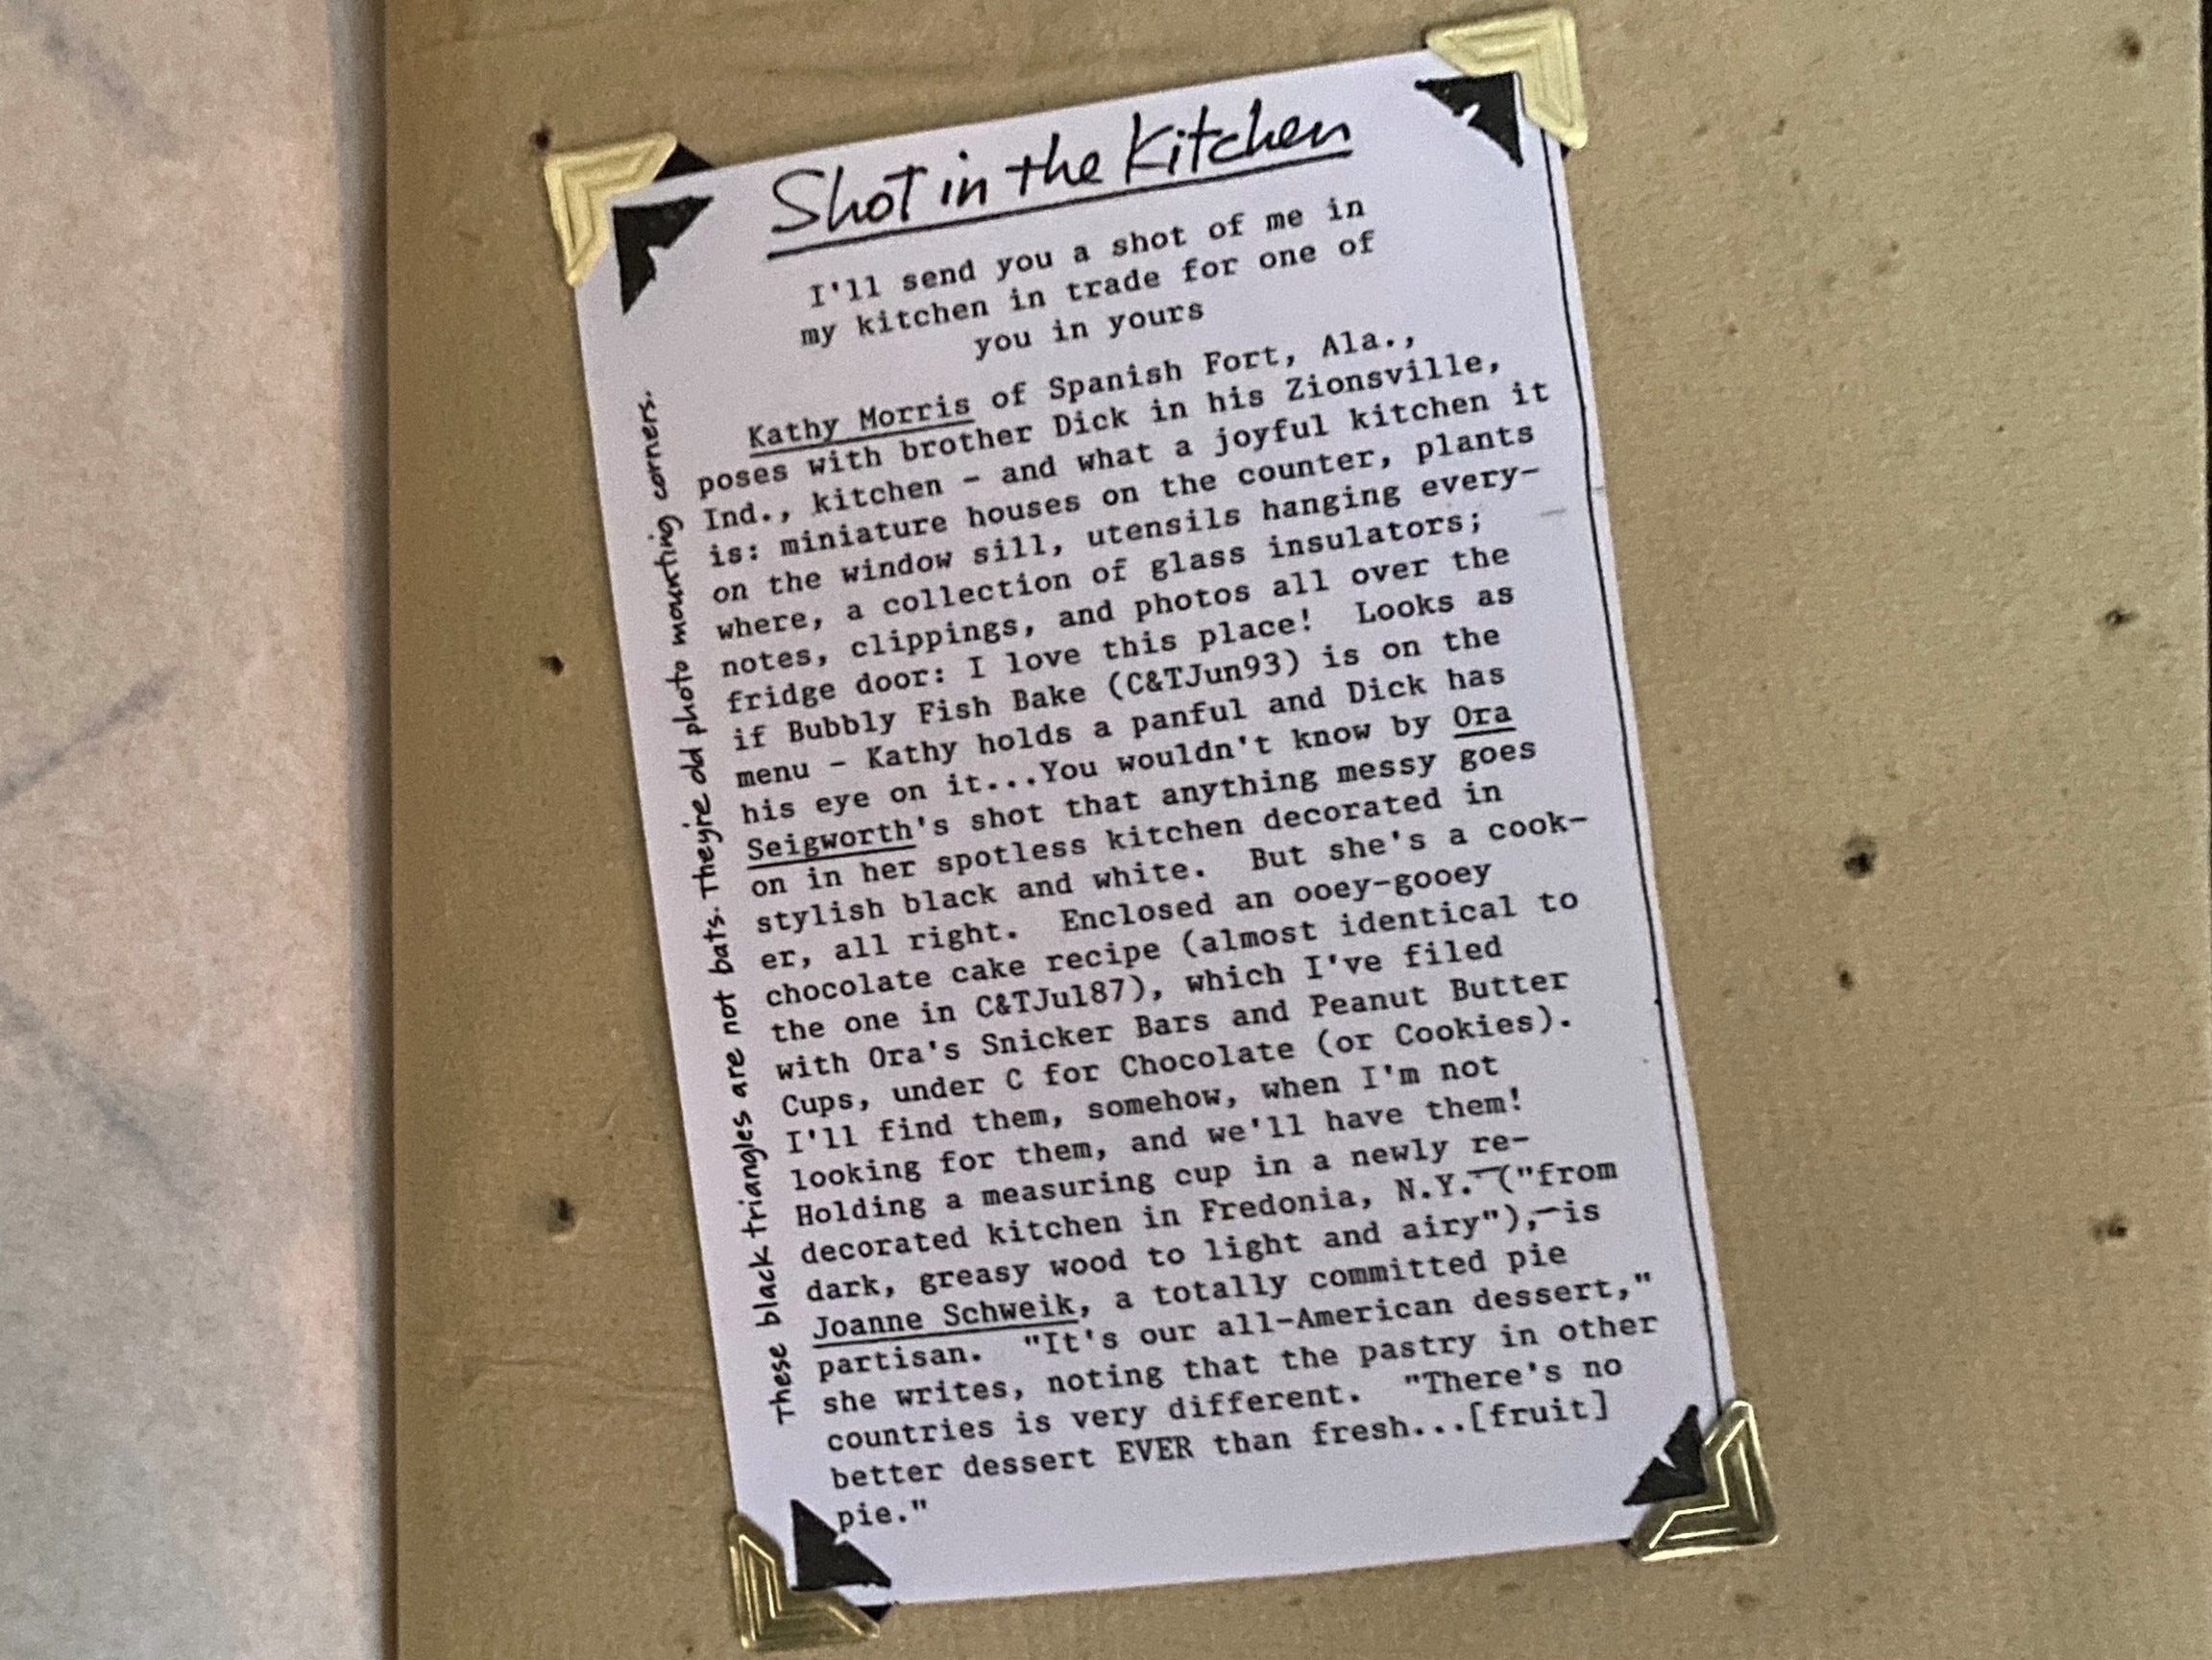 Shot in the Kitchen
I'll send you a shot of me in
my kitchen in trade for one of
you in yours
Kathy Morris of Spanish Fort, Ala.,
poses with brother Dick in his Zionsville,
Ind., kitchen - and what a joyful kitchen it
is: miniature houses on the counter, plants
on the window sill, utensils hanging every-
where, a collection of glass insulators;
notes, clippings, and photos all over the
fridge door: I love this place! Looks as
if Bubbly Fish Bake (C&TJun93) is on the
menu - Kathy holds a panful and Dick has
his eye on it...You wouldn't know by Ora
Seigworth's shot that anything messy goes
on in her spotless kitchen decorated in
stylish black and white. But she's a cook-
er, all right. Enclosed an ooey-gooey
chocolate cake recipe (almost identical to
the one in C&TJul87), which I've filed
with Ora's Snicker Bars and Peanut Butter
Cups, under C for Chocolate (or Cookies).
I'll find them, somehow, when I'm not
looking for them, and we'll have them!
Holding a measuring cup in a newly re-
decorated kitchen in Fredonia, N.Y. ("from
dark, greasy wood to light and airy"), is
Joanne Schweik, a totally committed pie
partisan. "It's our all-American dessert,"
she writes, noting that the pastry in other
countries is very different. "There's no
better dessert EVER than fresh...[fruit]
pie."
These black triangles are not bats. They're old photo mounting corners.